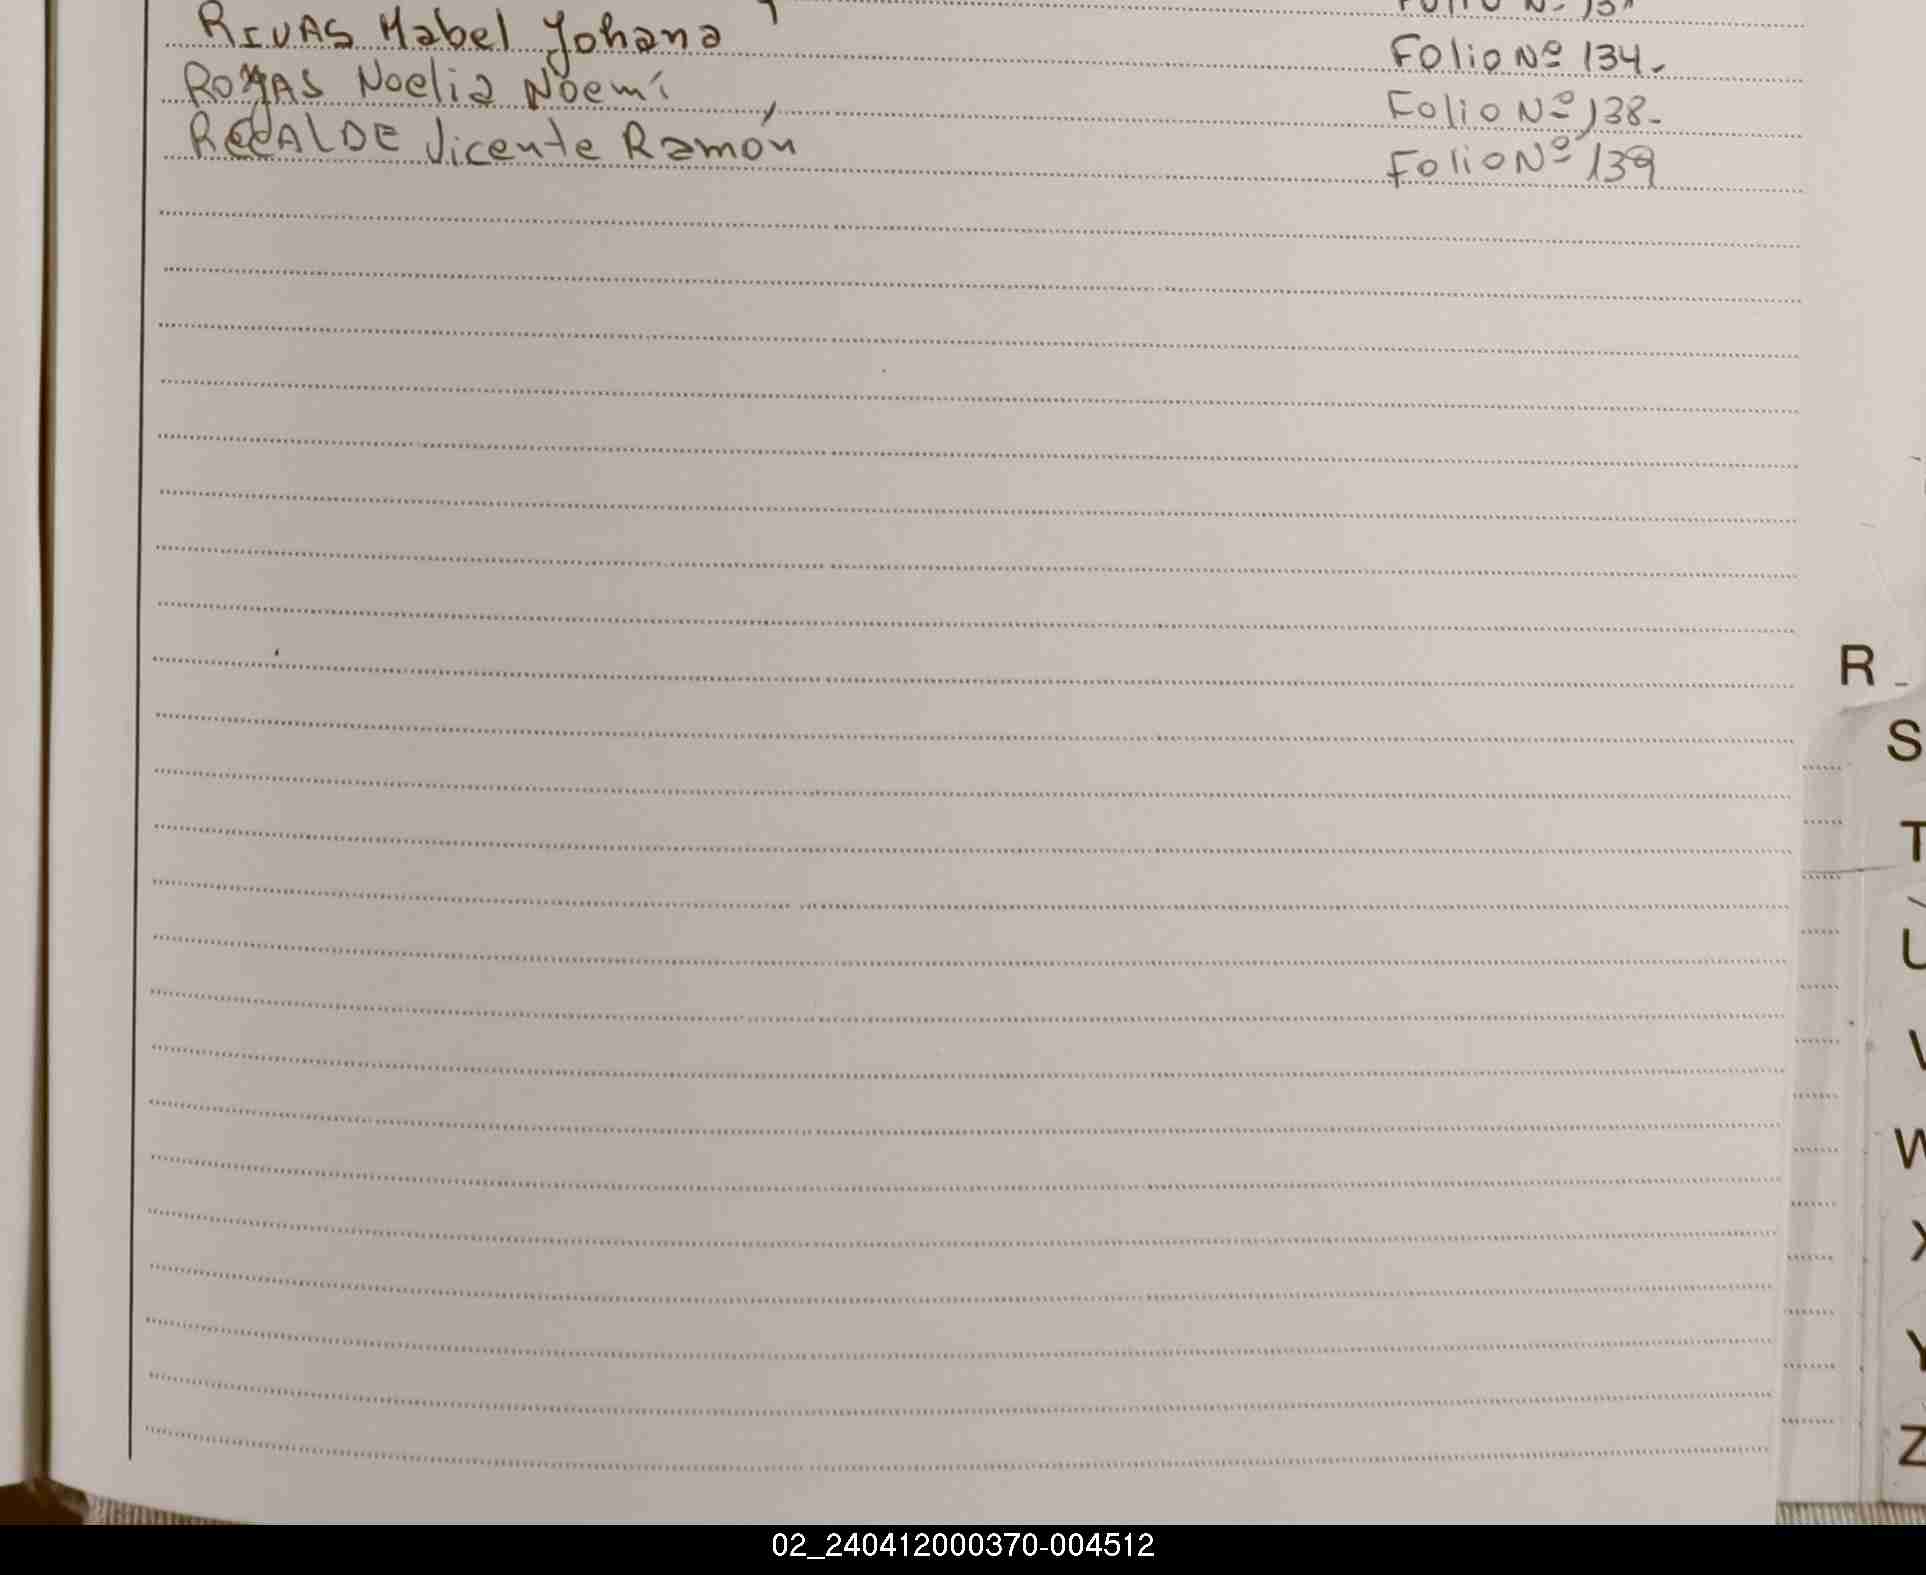 RIVAS Mabel Johana Folio Nº 134.
ROJAS Noelia Noemí Folio Nº 138.
RECALDE Vicente Ramón Folio Nº 139
R
S
T
U
V
W
X
Y
Z
02_240412000370-004512